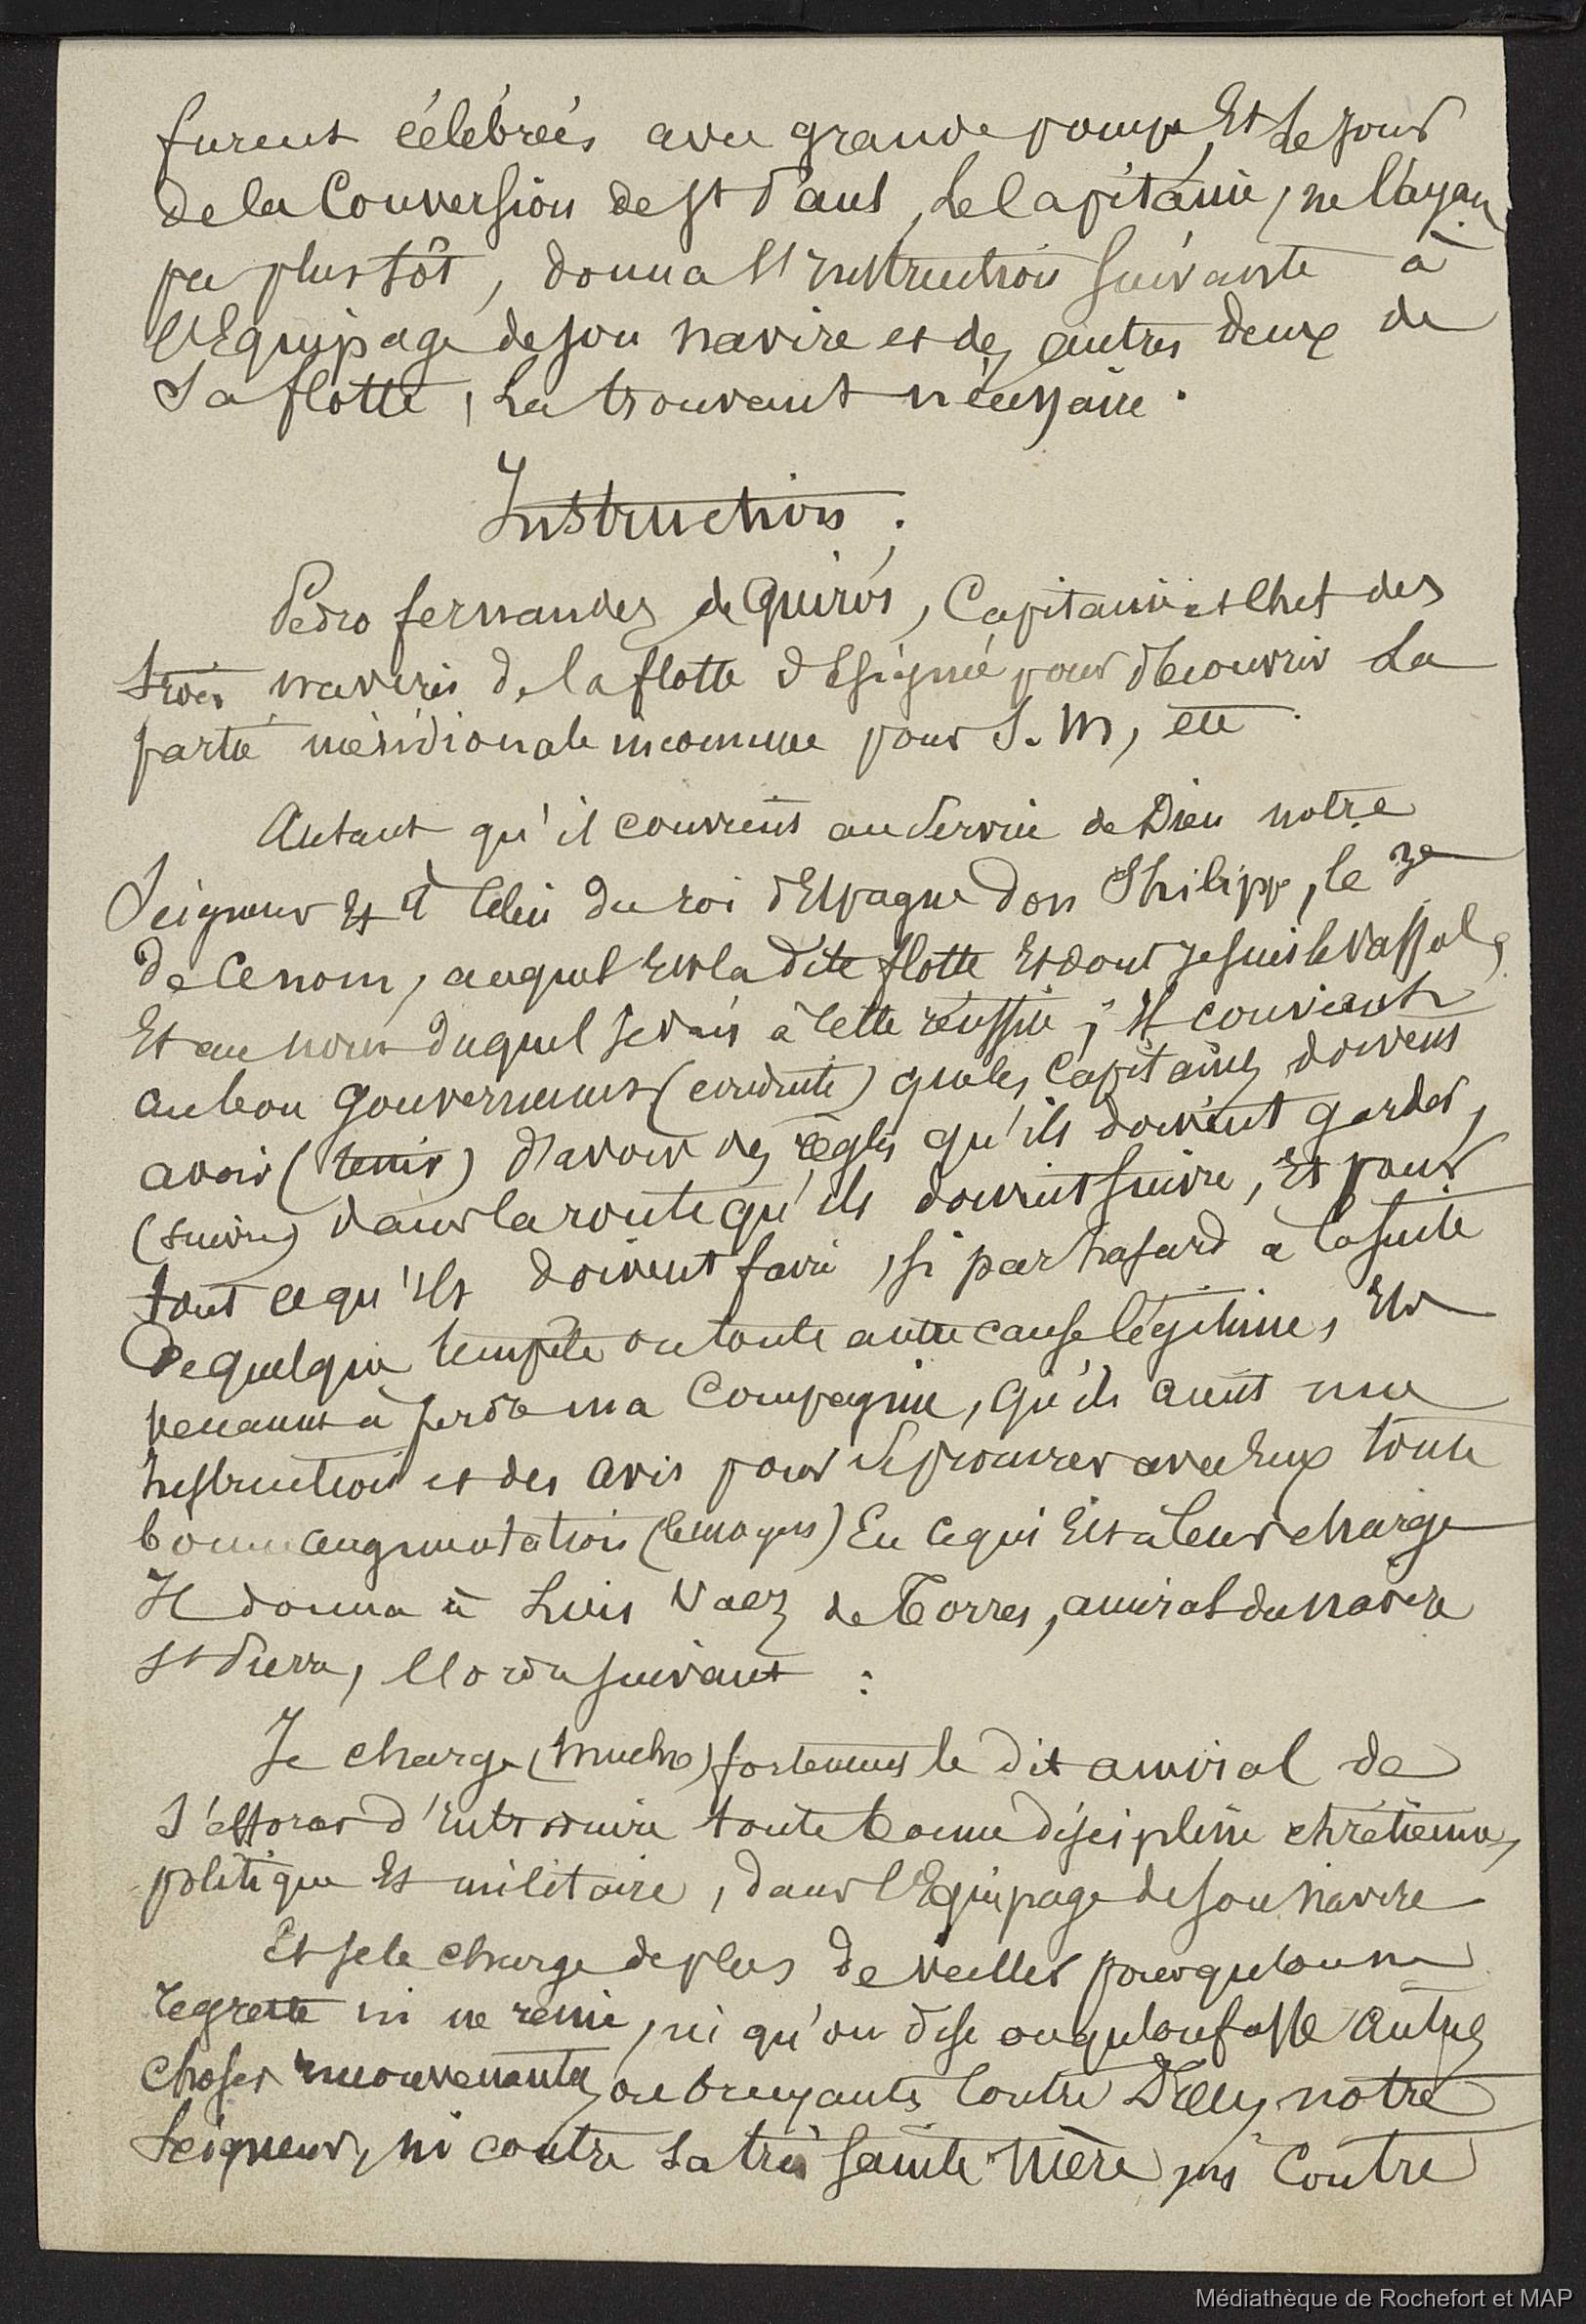 furent célébrées avec grande pompe, Et Le jour
de la Conversion de St Paul, Le Capitaine, ne l'ayan
pu plus tôt, donna l'Instruction suivante à
l'Equipage de son navire et des autres deux de
Sa flotte, La trouvant nécessaire.
Instruction :
Pedro fernandez de Quiros, Capitaine et Chef des
trois navires de la flotte désignée pour découvrir La
partie méridionale inconnue pour S. M, etc.
Autant qu'il convient au Service de Dieu notre
Seigneur Et à Celui du roi d'Espagne Don Philippe, le 3e
de Ce nom, auquel Est la dite flotte Et dont je suis le vassal,
Et au nom duquel je vais à Cette réussite ; Il convient
au bon gouvernement (conduite) que les Capitaines doivent
avoir (tenir) d'avoir des règles qu'ils doivent garder,
(suivre) dans la route qu'ils doivent suivre, Et pour
tout ce qu'ils doivent faire, si par hasard à la suite
De quelque tempête ou toute autre cause légitime, Ils
venaient à perdre ma Compagnie, qu'ils aient une
Instruction et des avis pour se procurer avec Eux toute
bonne augmentation (les moyens) En ce qui Est à leur charge
Il donna à Luis Vaez de Torres, amiral du navire
St Pierre, l'ordre suivant :
Je charge (mucho) fortement le dit amiral de
S'efforcer d'introduire toute bonne discipline chrétienne,
politique Et militaire, dans l'Equipage de son navire
Et je le charge de plus de veiller pour que l'on ne
regrette ni ne renie, ni qu'on dise ou que l'on fasse autres
choses inconvenantes, ou bruyantes Contre Dieu, notre
Seigneur, ni contre Sa très Sainte Mère, ni Contre
Médiathèque de Rochefort et MAP